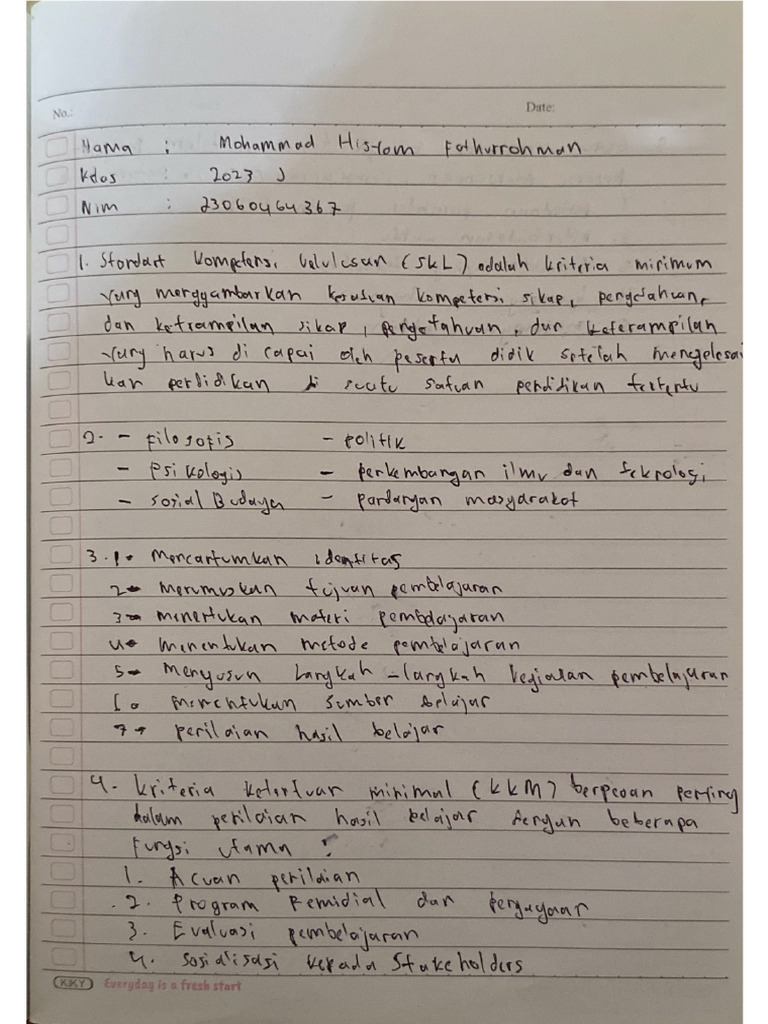 No.:
Date:
Nama : Mohammad Hisyom Fathurrohman
Kelas : 2023 J
Nim : 23060464367
1. Standart Kompetensi Lulusan (SKL) adalah kriteria minimum
yang menggambarkan kesatuan kompetensi sikap, pengetahuan,
dan ketrampilan sikap, pengetahuan, dan keterampilan
yang harus di capai oleh peserta didik setelah menyelesai
kan pendidikan di suatu satuan pendidikan tertentu
2. - Filosofis - politik
- Psikologis - perkembangan ilmu dan teknologi
- Sosial Budaya - pandangan masyarakat
3. 1. Mencantumkan identitas
2. Merumuskan tujuan pembelajaran
3. menentukan materi pembelajaran
4. Menentukan metode pembelajaran
5. Menyusun Langkah - langkah kegiatan pembelajaran
6. menentukan sumber belajar
7. penilaian hasil belajar
4. kriteria ketentuan minimal (KKM) berperan penting
dalam penilaian hasil belajar dengan beberapa
fungsi utama :
1. Acuan penilaian
2. Program Remidial dan pengayaan
3. Evaluasi pembelajaran
4. Sosialisasi kepada Stakeholders
KIKY Everyday is a fresh start